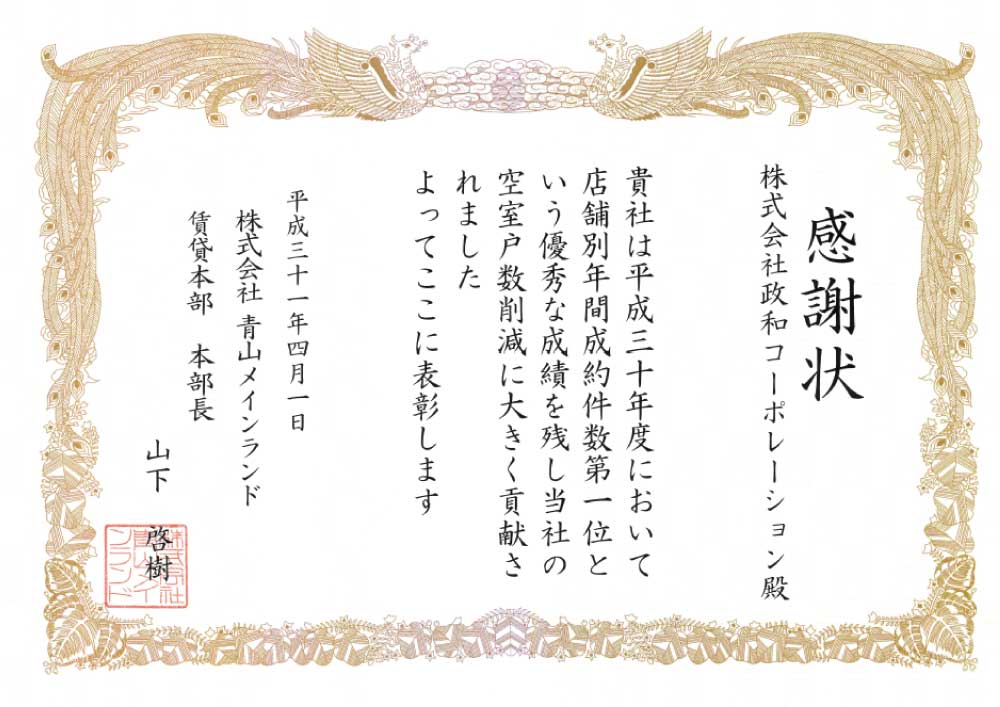 感謝状
株式会社政和コーポレーション殿
貴社は平成三十年度において
店舗別年間成約件数第一位と
いう優秀な成績を残し当社の
空室戸数削減に大きく貢献さ
れました
よってここに表彰します
平成三十一年四月一日
株式会社 青山メインランド
賃貸本部 本部長
山下 啓樹
株式会社
青山メイ
ンランド